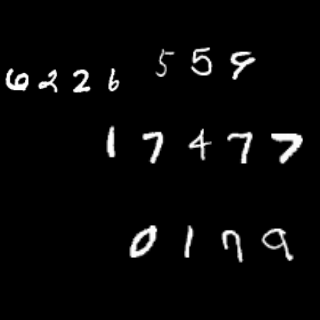 6226
559
17477
0179